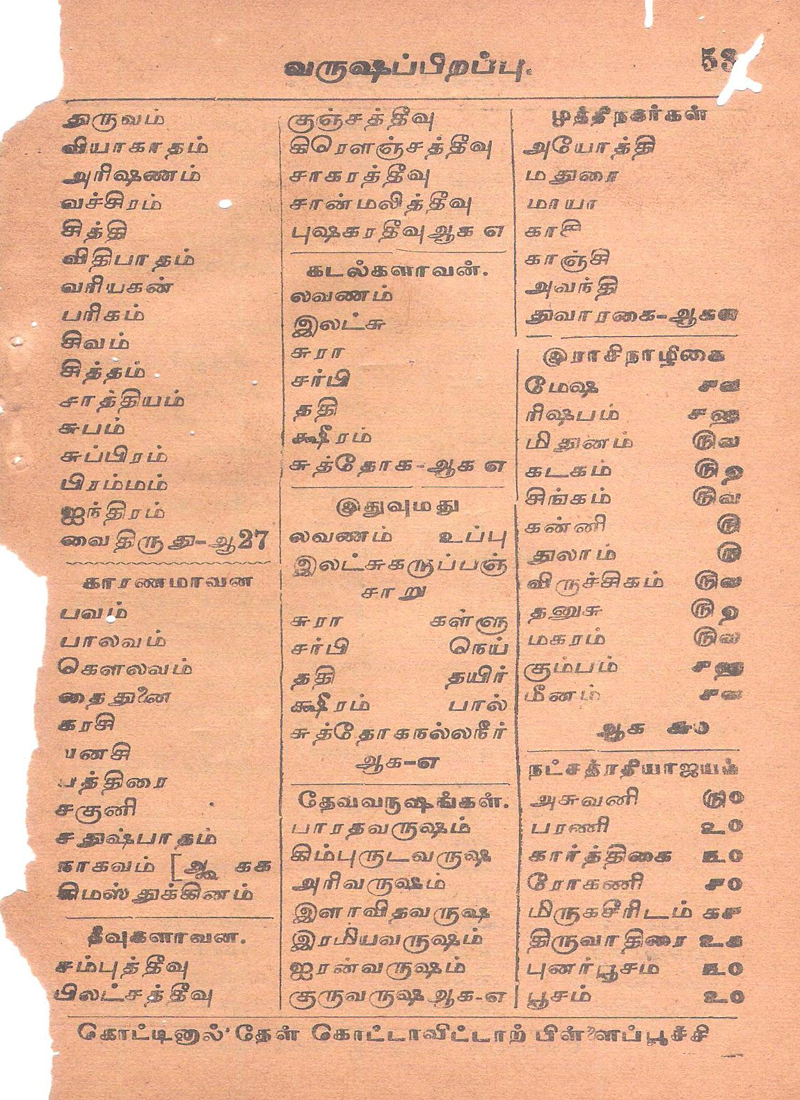 வருஷப்பிறப்பு.
53
துருவம்
வியாகாதம்
அரிஷணம்
வச்சிரம்
சித்தி
விதிபாதம்
வரியகன்
பரிகம்
சிவம்
சித்தம்
சாத்தியம்
சுபம்
சுப்பிரம்
பிரம்மம்
ஐந்திரம்
வைதிருது-ஆ27
காரணமாவன
பவம்
பாலவம்
கௌலவம்
தைதுளை
கரசி
பனசி
பத்திரை
சகுனி
சதுஷ்பாதம்
நாகவம் [ஆ கக
கிமஸ்துக்கினம்
தீவுகளாவன.
சம்புத்தீவு
பிலட்சத்தீவு
குஞ்சத்தீவு
கிரௌஞ்சத்தீவு
சாகரத்தீவு
சான்மலித்தீவு
புஷகரதீவு ஆக எ
கடல்களாவன.
லவணம்
இலட்சு
சுரா
சர்பி
ததி
க்ஷீரம்
சுத்தோக-ஆக எ
இதுவுமது
லவணம் உப்பு
இலட்சுகருப்பஞ்
சாறு
சுரா கள்ளு
சர்பி நெய்
ததி தயிர்
க்ஷீரம் பால்
சுத்தோகநல்லநீர்
ஆக-எ
தேவவருஷங்கள்.
பாரதவருஷம்
கிம்புருடவருஷ
அரிவருஷம்
இளாவிதவருஷ
இரமியவருஷம்
ஐரன்வருஷம்
குருவருஷ ஆக-எ
முத்தீநகர்கள்
அயோத்தி
மதுரை
மாயா
காசி
காஞ்சி
அவந்தி
துவாரகை-ஆக
இராசிநாழிகை
மேஷ
ரிஷபம்
மிதுனம்
கடகம்
சிங்கம்
கன்னி ரு
துலாம் ரு
விருச்சிகம்
தனுசு
மகரம்
கும்பம்
மீனம்
ஆக சு௦
நட்சத்ராதியாஜயம்
அசுவனி ரு௦
பரணி உ௦
கார்த்திகை ௩௦
ரோகணி ச௦
மிருகசீரிடம் கச
திருவாதிரை உக
புனர்பூசம் ௩௦
பூசம் உ௦
கொட்டினால் தேள் கொட்டாவிட்டாற் பிள்ளைப்பூச்சி